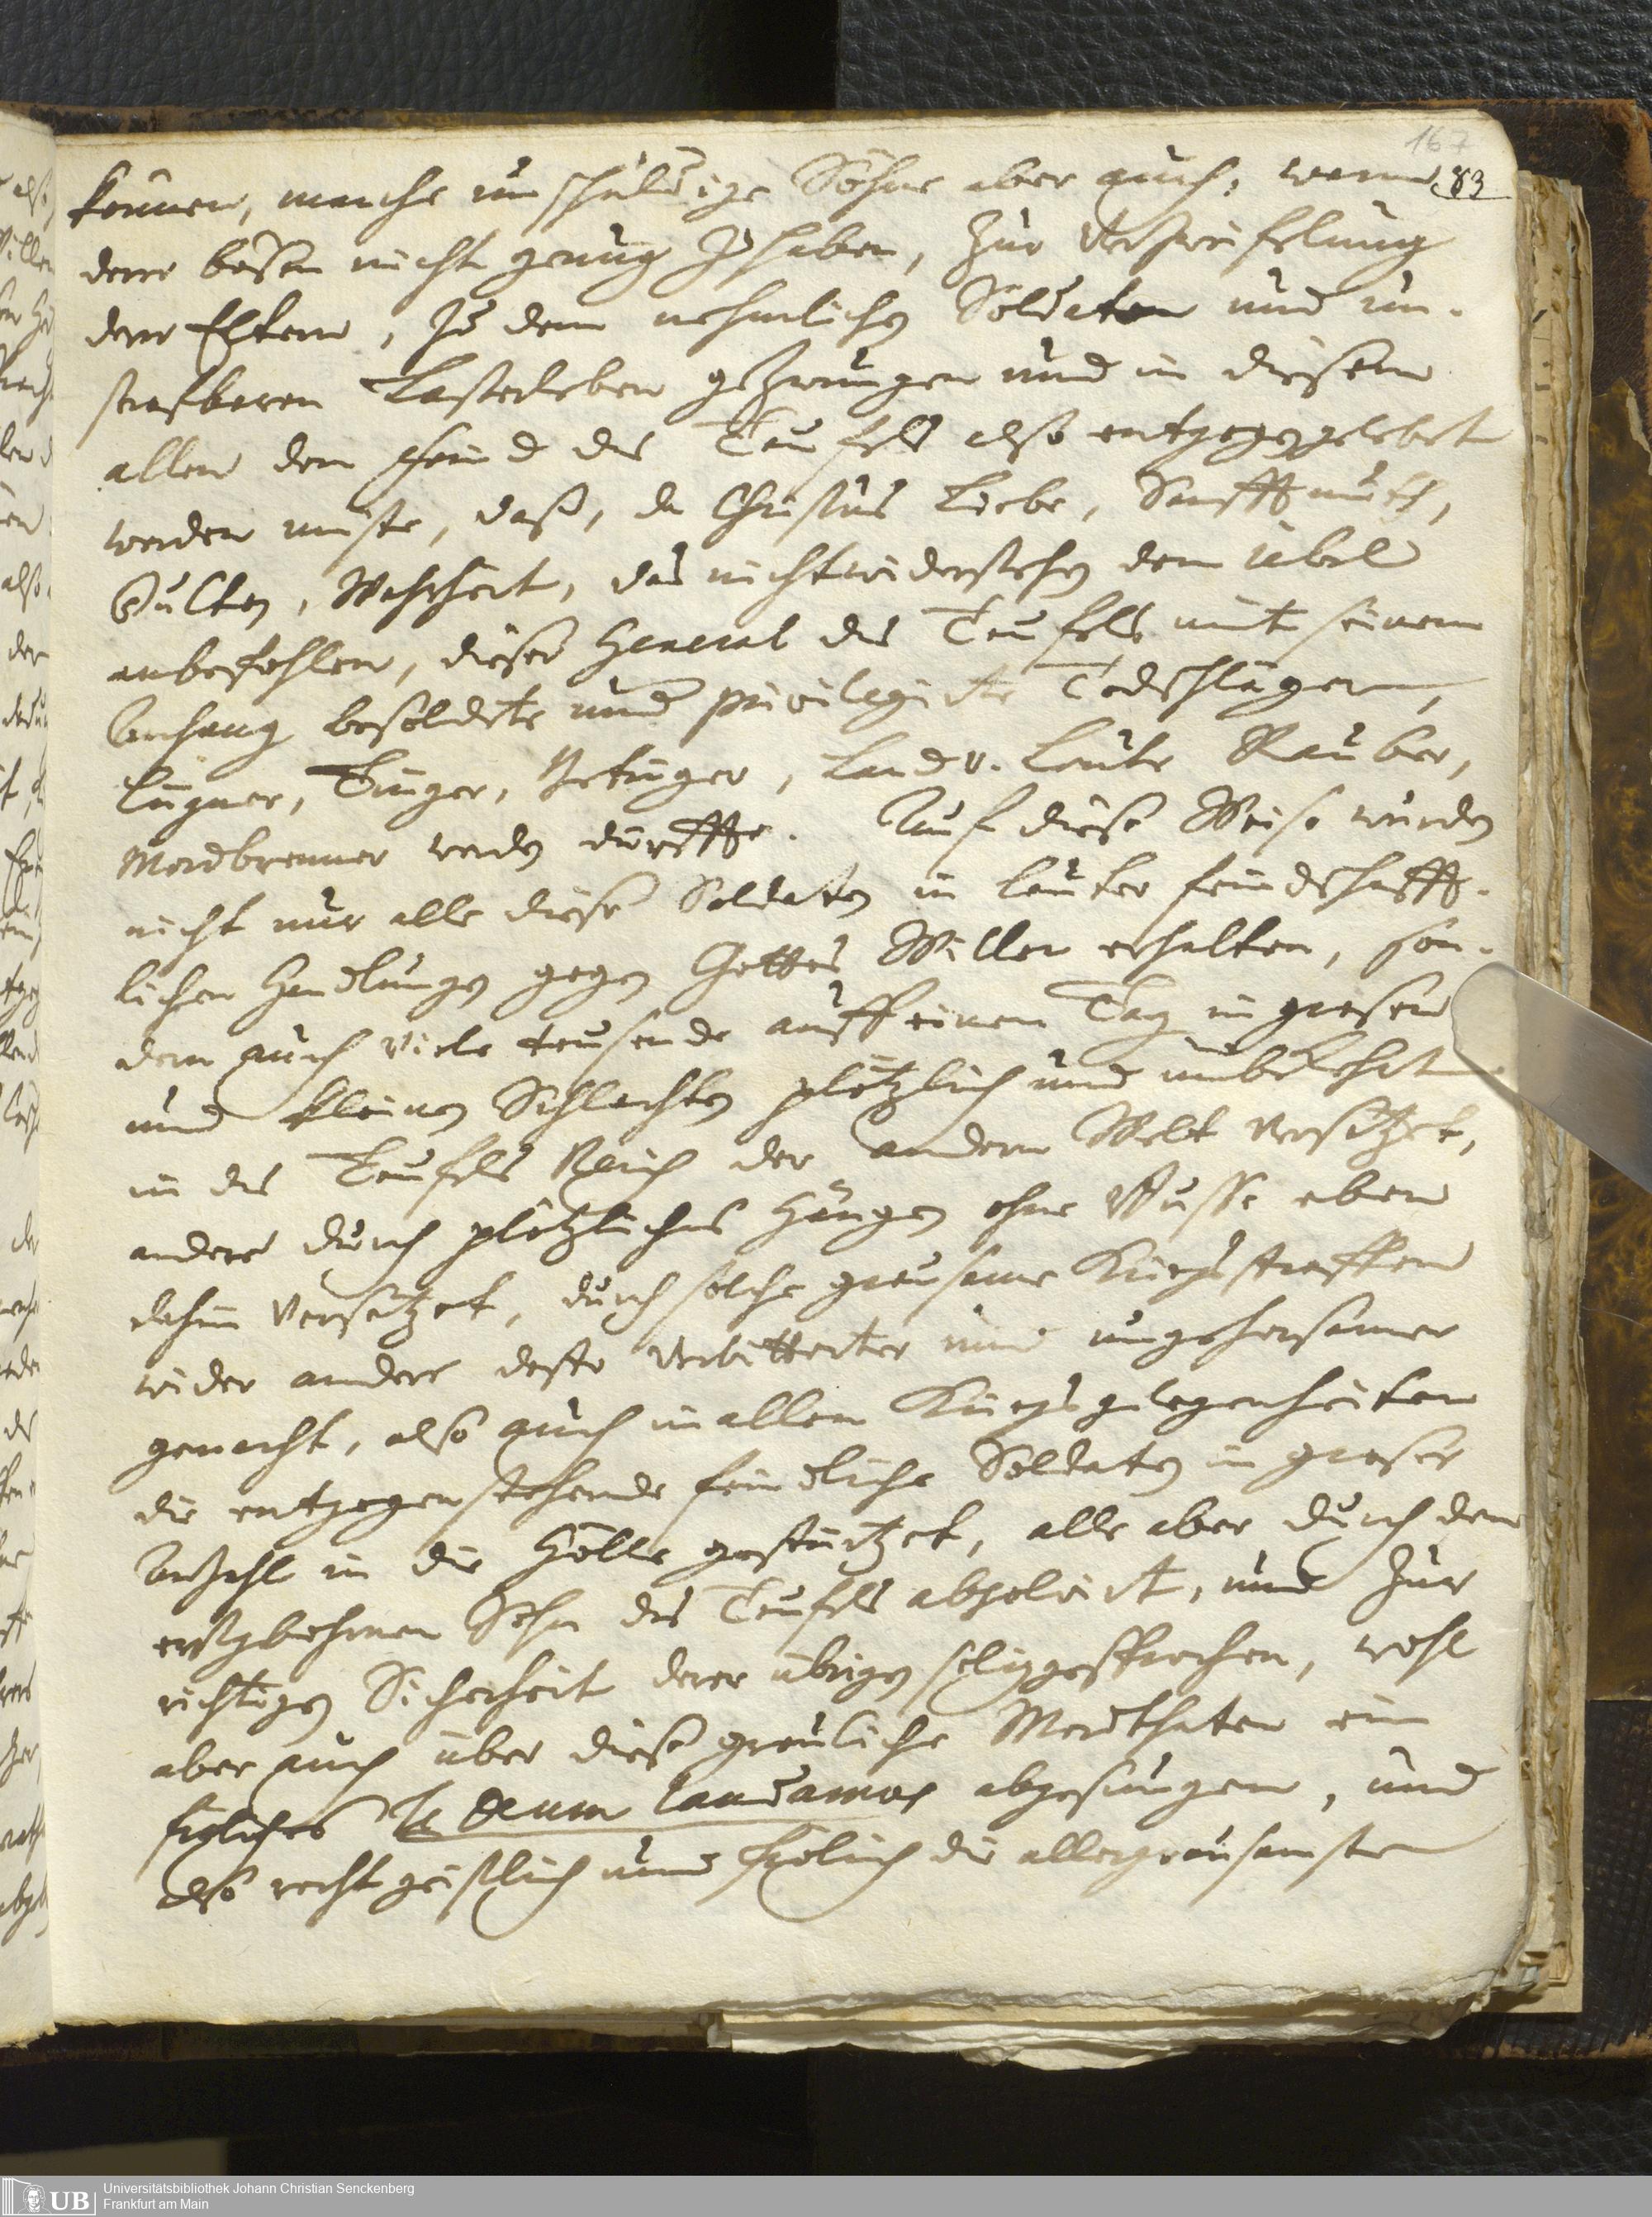 167
83
können, manche unschuldige Söhne aber auch, wann
derer bösen nicht genug zu haben, zur Verzweifelung
derer Eltern, zu dem nehmlichen Soldaten und un-
strafbaren Lasterleben gezwungen und in diesem
allen dem Feind des Teufels also entgegengelebet
werden müste, daß, da Christus Liebe, Sanfftmuth,
Dulten, Wahrheit, das nichtwiderstehen dem übel
anbefohlen, dieser General des Teufels mit seinem
Anhang besoldete und privilegirte Todschläger,
Lügner, Betrieger, Land u. Leute Rauber,
Mordbrenner werden dürffte. Auf diese Weise wurden
nicht nur alle diese Soldaten in lauter feindschafft-
lichen Handlungen gegen Gottes Willen erhalten, son-
dern auch viele tausende auff einen Tag in grosen
und kleinen Schlachten plötzlich und unbekehrt
in des Teufels Reich der andern Welt versetzet,
andere durch plötzliches Hängen ohne Busse eben
dahin versetzet, durch solche grausame Kriegsstraffen
wider andere desto verbitterter und ungehorsamer
gemacht, also auch in allen Kriegsgelegenheiten
die entgegenstehende feindliche Soldaten in groser
Anzahl in die Hölle gestürtzet, alle aber durch den
erstgebohrnen Sohn des Teufels absolvirt, und zur
richtigen Sicherheit derer übrigen seliggesprochen, wohl
aber auch über diese greuliche Mordthaten ein
Te Deum laudamus abgesungen, und
also recht geistlich und frölich die allergrausamsten
UB
Universitätsbibliothek Johann Christian Senckenberg
Frankfurt am Main